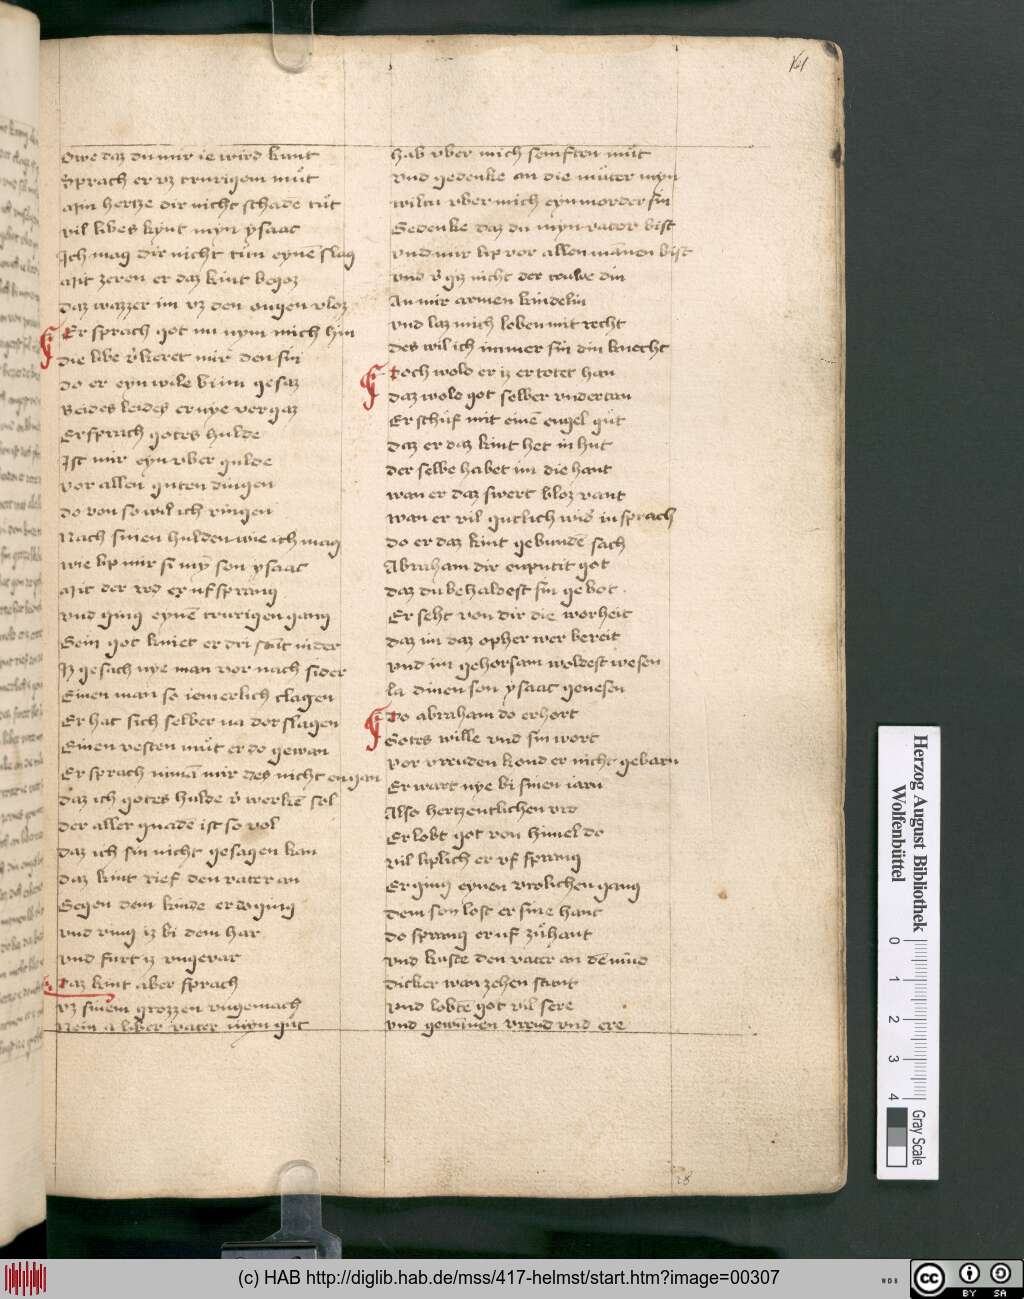 161
Owe daz du mir ie wird kunt
Sprach er vz trurigem mut
Min hertze dir nicht schade tut
vil libes kynt myn ysaac
Ich mag dir nicht tun eynē slag
Mit zeren er daz kint begoz
Daz wazzer im vz den ougen vloz
Er sprach got nu nym mich hin
die libe v'keret mir den sin
do er eyn wile bi im gesaz
Beides leides er nye vergaz
Er sprach gotes hulde
Ist mir eyn vber gulde
vor allen guten dingen
do von so wil ich ringen
Nach sinen hulden wie ich mag
wie lip mir si myn son ysaac
Mit der red er uf sprang
vnd ging eynē trurigen gang
Gein got kniet er dri stūt nider
Iz gesach nye man vor nach sider
Einen man so iemerlich clagen
Er hat sich selber na der slagen
Einen vesten mut er do gewan
Er sprach niman mir des nicht en gan
daz ich gotes hulde v'werkē sol
der aller gnadē ist so vol
daz ich sin nicht gesagen kan
daz kint rief den vater an
Gegen dem kinde er do ging
vnd ving iz bi dem har
vnd furt iz vngevar
Daz kint aber sprach
vz sinem grozzen vngemach
Nein a liber vater myn gut
hab vber mich senften mut
vnd gedenke an die muter myn
wiltu vber mich eyn morder sin
Gedenke daz du myn vater bist
vnd mir lip vor allen mannen bist
vnd v'giz nicht der trwe din
An mir armen kindelin
vnd laz mich leben mit recht
des wil ich immer sin din knecht
Doch wold er iz ertotet han
daz wold got selber vndertan
Er schuf mit einē engel gut
daz er daz kint het in hut
der selbe habet im die hant
wan er daz swert bloz vant
wan er vil gutlich wid' in sprach
do er daz kint gebundē sach
Abraham dir enputit got
daz du behaldest sin gebot
Er seht von dir die worheit
daz im daz opher wer bereit
vnd im gehorsam woldest wesen
la dinen son ysaac genesen
Do abraham do erhort
Gotes wille vnd sin wort
vor vreuden kond er nicht gebarn
Er wart nye bi sinen iarn
Also hertzentlichen vro
Er lobt got von himel do
vil liplich er vf sprang
Er ging eynen vrolichen gang
dem son lost er sine hant
do sprang er uf zuhant
vnd kuste den vater an dē mūd
dicker wan zehen stunt
vnd lobtē got vil sere
vnd gewūnen vreud vnd ere
28
Herzog August Bibliothek
Wolfenbüttel
0 1 2 3 4
Gray Scale
(c) HAB http://diglib.hab.de/mss/417-helmst/start.htm?image=00307
WDB
cc BY SA